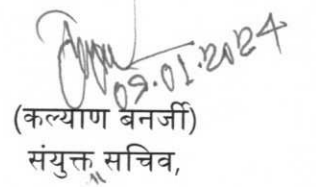 09.01.2024
(कल्याण बनर्जी)
संयुक्त सचिव,